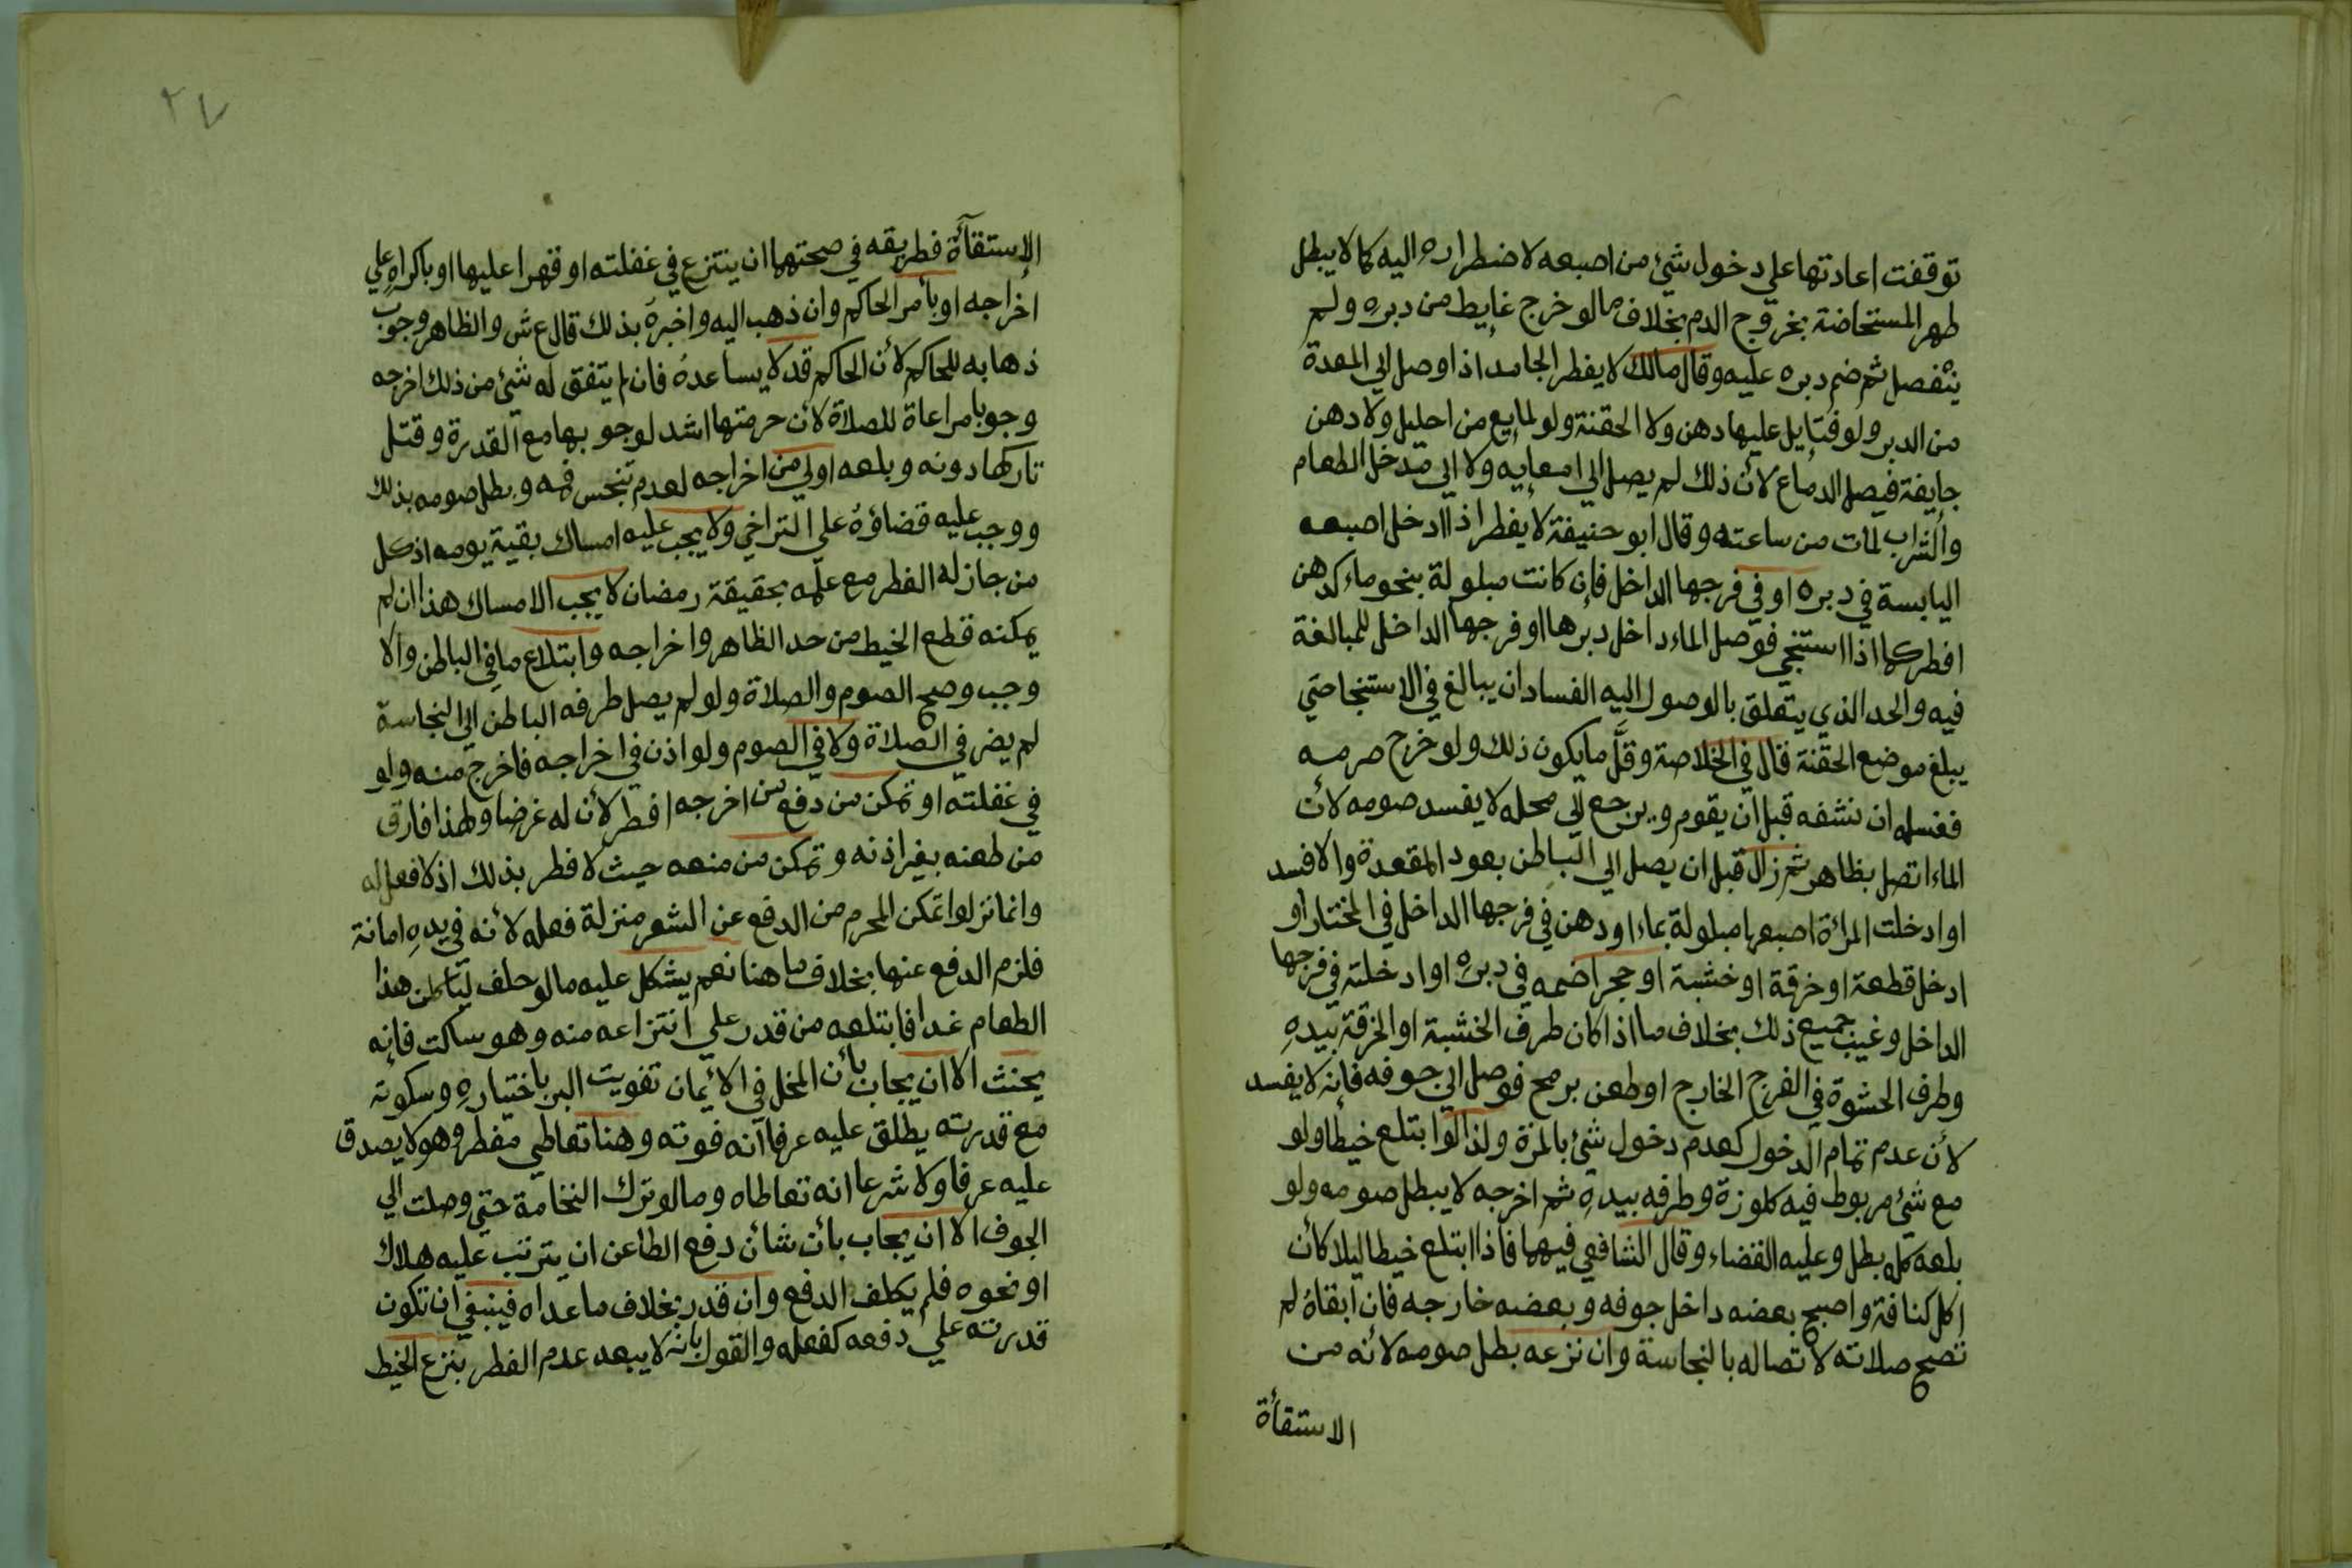 توقفت اعادتها علي دخول شئ من اصبعه لاضطراره اليه كما لا يبطل
طهر المستحاضة بخروج الدم بخلاف مالو خرج غايط من دبره ولم
ينفصل ثم ضم دبره عليه وقال مالك لا يفطر الجامد اذا وصل الي المعدة
من الدبر ولو فتايل عليها دهن ولا الحقنة ولو لمايع من احليل ولا دهن
جايفة فيصل الدماع لأن ذلك لم يصل الي امعايه ولا الي مدخل الطعام
والشراب لمات من ساعته وقال ابو حنيفة لا يفطر اذا ادخل اصبعه
اليابسة في دبره او في فرجها الداخل فإن كانت مبلولة بنحو ماء كدهن
افطر كما اذا استنجي فوصل الماء داخل دبرها او فرجها الداخل للمبالغة
فيه والحد الذي يتعلق بالوصول اليه الفساد ان يبالغ في الاستنجا حتي
يبلغ موضع الحقنة قال في الخلاصة وقلَّ ما يكون ذلك ولو خرج صرمه
فغسله ان نشفه قبل ان يقوم ويرجع الي محله لا يفسد صومه لأن
الماء اتصل بظاهر ثم زال قبل ان يصل الي الباطن بعود المقعدة والا فسد
او ادخلت المرأة اصبعها مبلولة بماء او دهن في فرجها الداخل في المختار او
ادخل قطعة او خرقة او خشبة او حجر اضمه في دبره او ادخلته في فرجها
الداخل وغيب جميع ذلك بخلاف ما اذا كان طرف الخشبة او الخرقة بيدهِ
وطرف الحشوة في الفرج الخارج او طعن برمح فوصل الي جوفه فإنه لا يفسد
لأن عدم تمام الدخول كعدم دخول شئ بالمرة ولذا لو ابتلع خيطا ولو
مع شئ مربوط فيه كلوزة وطرفه بيدهِ ثم اخرجه لا يبطل صومه ولو
بلعه كله بطل وعليه القضاء وقال الشافعي فيهما فاذا ابتلع خيطا ليلا كأن
اكل كنافة واصبح بعضه داخل جوفه وبعضه خارجه فان ابقاهُ لم
تصح صلاته لاتصاله بالنجاسة وان نزعه بطل صومه لأنه من
الاستقأة
٢٧
الإستقأة فطريقه في صحتهما ان ينتزع في غفلته او قهرا عليها او باكراهِ علي
اخراجه او بأمر الحاكم وان ذهب اليه واخبرهُ بذلك قال ع ش والظاهر وجوب
ذهابه للحاكم لأن الحاكم قد لا يساعدهُ فان لم يتفق له شئ من ذلك اخرجه
وجوبا مراعاة للصلاة لأن حرمتها اشد لوجوبها مع القدرة وقتل
تاركها دونه وبلعه اولي من اخراجه لعدم تنجس فمه وبطل صومه بذلك
ووجب عليه قضاؤهُ علي التراخي ولا يجب عليه امساك بقية يومه اذ كل
من جاز له الفطر مع علمه بحقيقة رمضان لا يجب الامساك هذا ان لم
يمكنه قطع الخيط من حد الظاهر واخراجه وابتلاع ما في الباطن والا
وجب وصح الصوم والصلاة ولو لم يصل طرفه الباطن الي النجاسة
لم يضر في الصلاة ولا في الصوم ولو اذن في اخراجه فاخرج منه ولو
في غفلته او تمكن من دفع من اخرجه افطر لأن له غرضا ولهذا فارق
من طعنه بغير اذنه وتمكن من منعه حيث لا فطر بذلك اذ لا فعل له
وانما نزلوا تمكن المحرم من الدفع عن الشعر منزلة فعله لأنه في يدهِ امانة
فلزم الدفع عنها بخلاف ما هنا نعم يشكل عليه مالو حلف ليأكلن هذا
الطعام غدا فابتلعه من قدر علي انتزاعه منه وهو ساكت فإنه
يحنث الا ان يجاب بأن المخل في الأيمان تفويت البر باختيارهِ وسكوته
مع قدرته يطلق عليه عرفا أنه فوته وهنا تعاطي مفطر وهو لا يصدق
عليه عرفا ولا شرعا انه تعاطاه ومالو ترك النخامة حتي وصلت الي
الجوف الا ان يجاب بأن شأن دفع الطاعن ان يترتب عليه هلاك
او نحوه فلم يكلف الدفع وان قدر بخلاف ما عداه فينبغي ان تكون
قدرته علي دفعه كفعله والقول بانه لا يبعد عدم الفطر بنزع الخيط